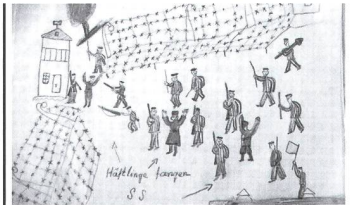 Häftlinge fangen
SS